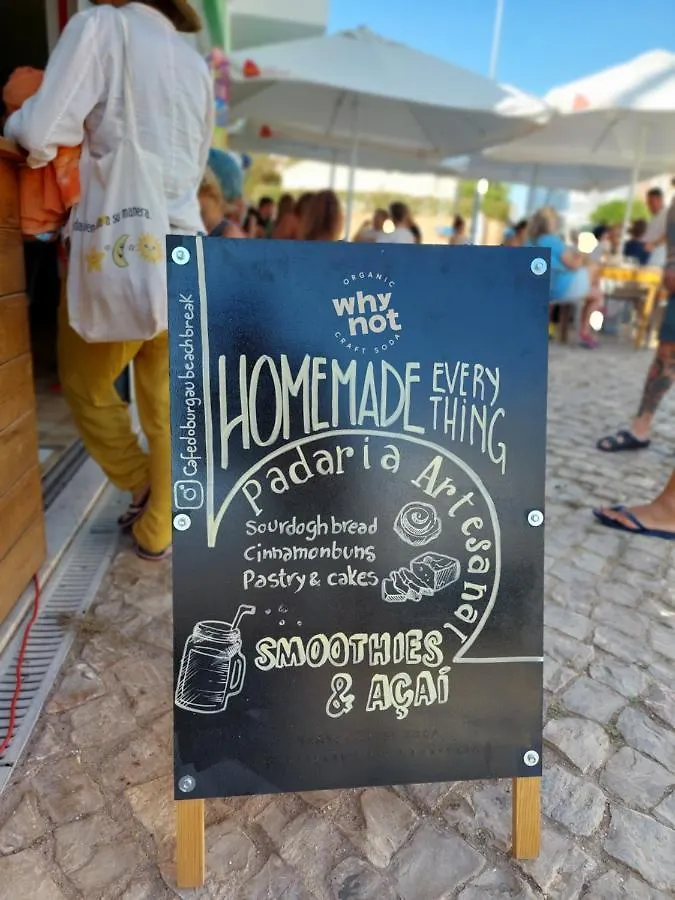 ORGANIC
why
not
CRAFT SODA
HOMEMADE EVERY
THING
Padaria Artesanal
Sourdogh bread
Cinnamonbuns
Pastry & cakes
SMOOTHIES
& AÇAÍ
Cafedoburgau beachbreak
a su manera.